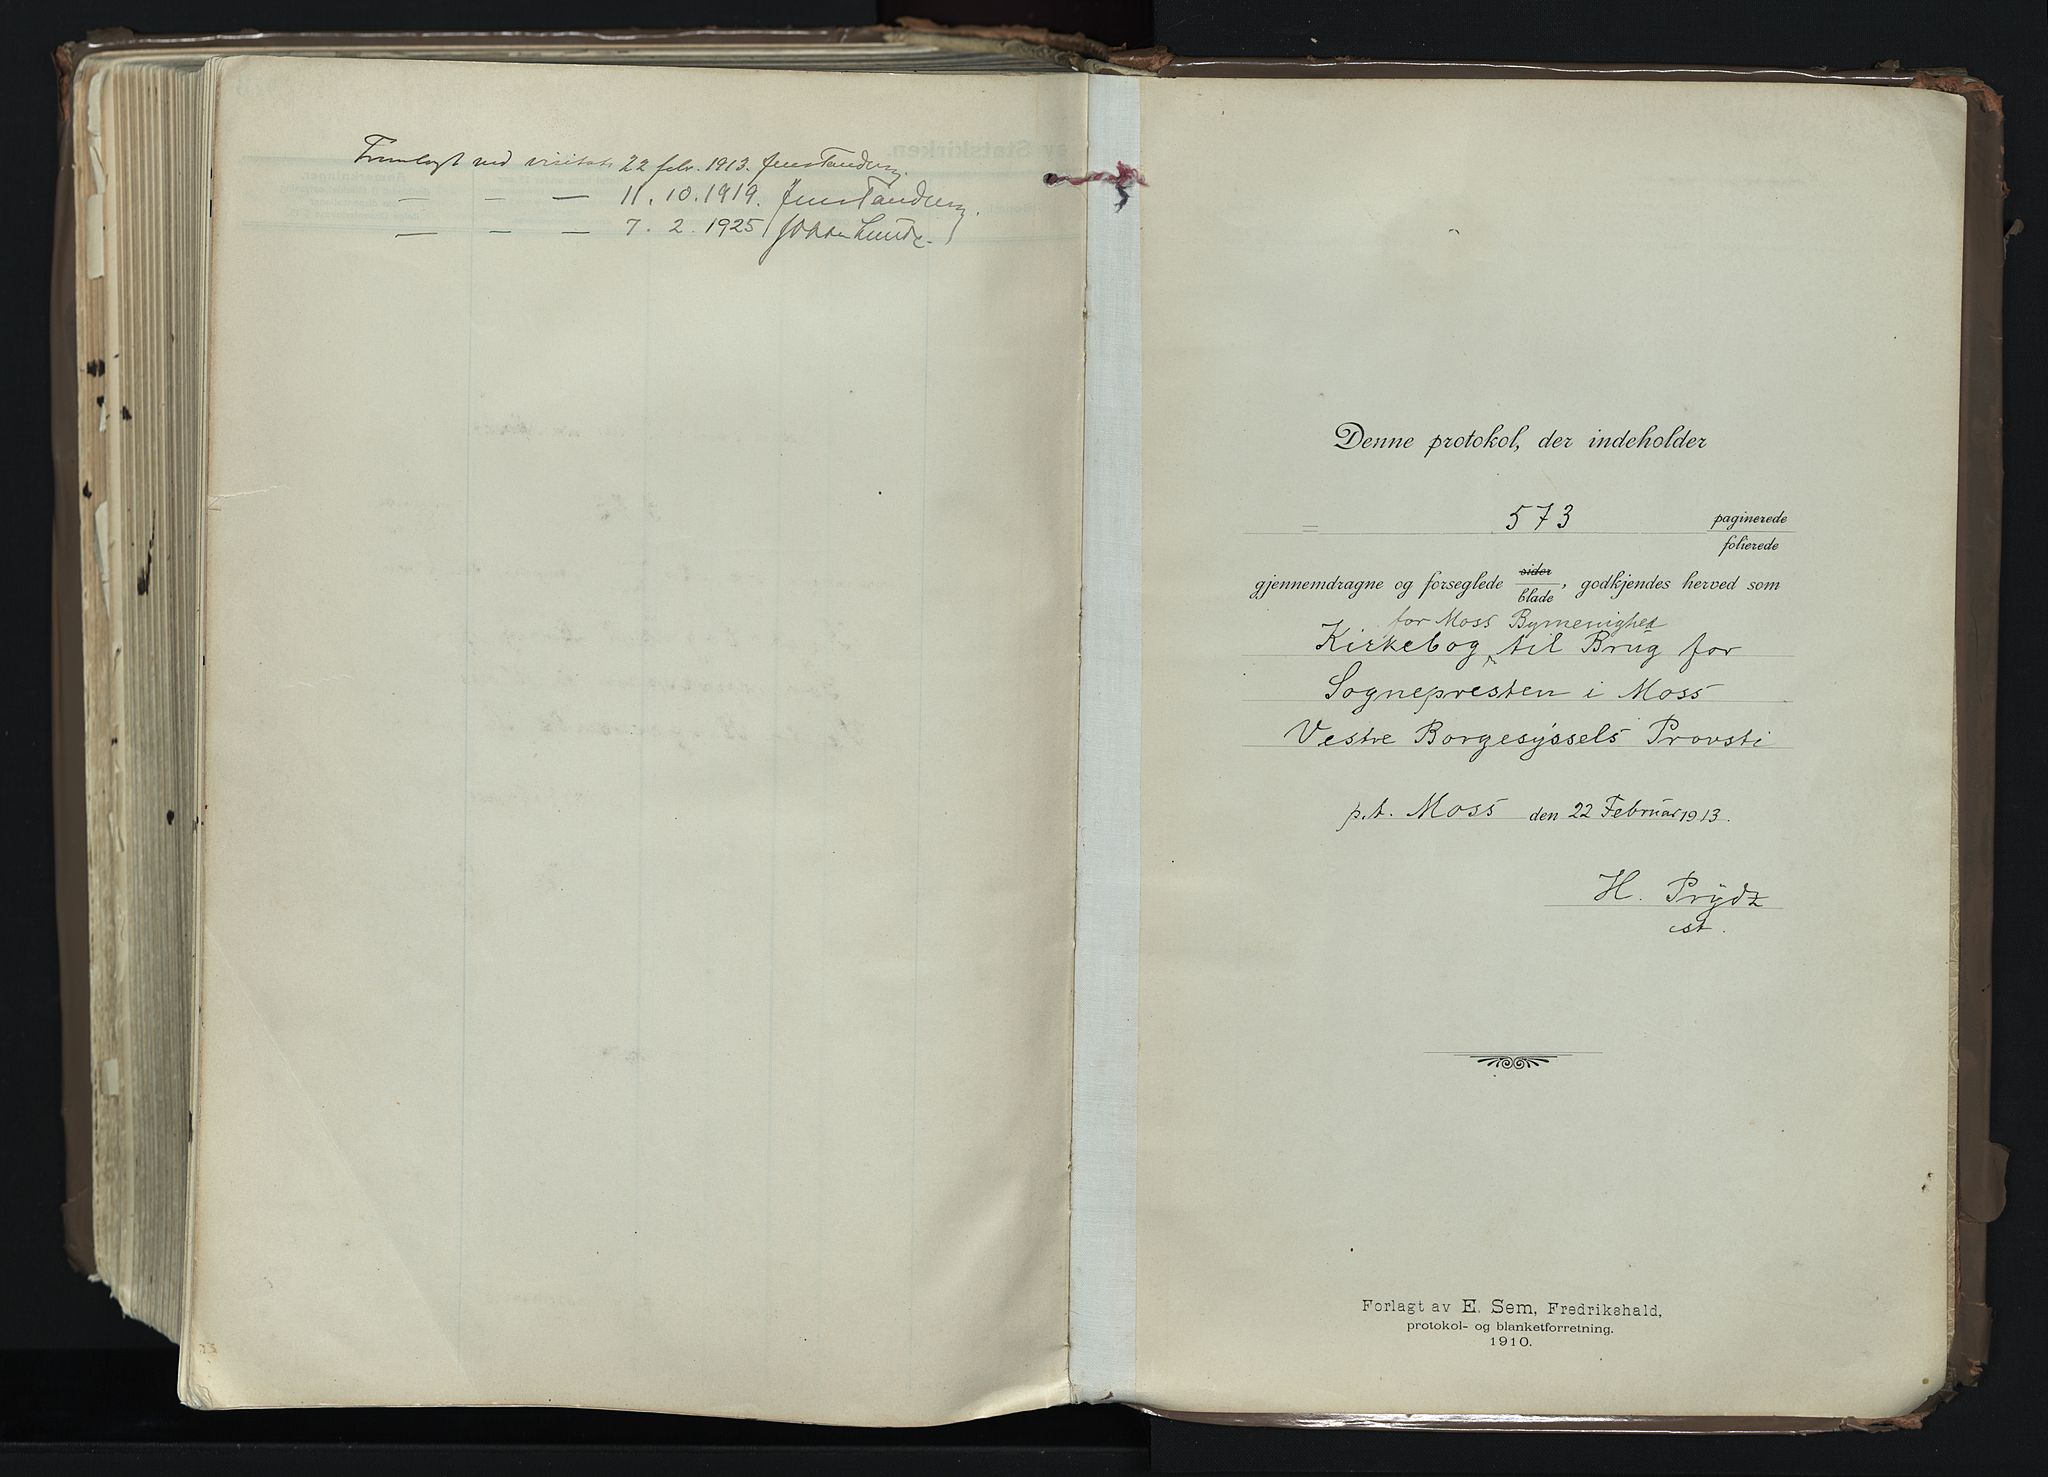 Fremlagt ved visitats 22 febr. 1913. Jens Tandberg.
— — — 11. 10. 1919. Jens Tandberg.
— — — 7. 2. 1925 Johan Lunde.
Denne protokol, der indeholder
= 573 paginerede
folierede
gjennemdragne og forseglede sider
blade, godkjendes herved som
for Moss Bymenighed
Kirkebog til Brug for
Sognepresten i Moss
Vestre Borgesyssels Provsti
p.t. Moss den 22 Februar 1913.
H. Prydz
st.
Forlagt av E. Sem, Fredrikshald,
protokol- og blanketforretning.
1910.